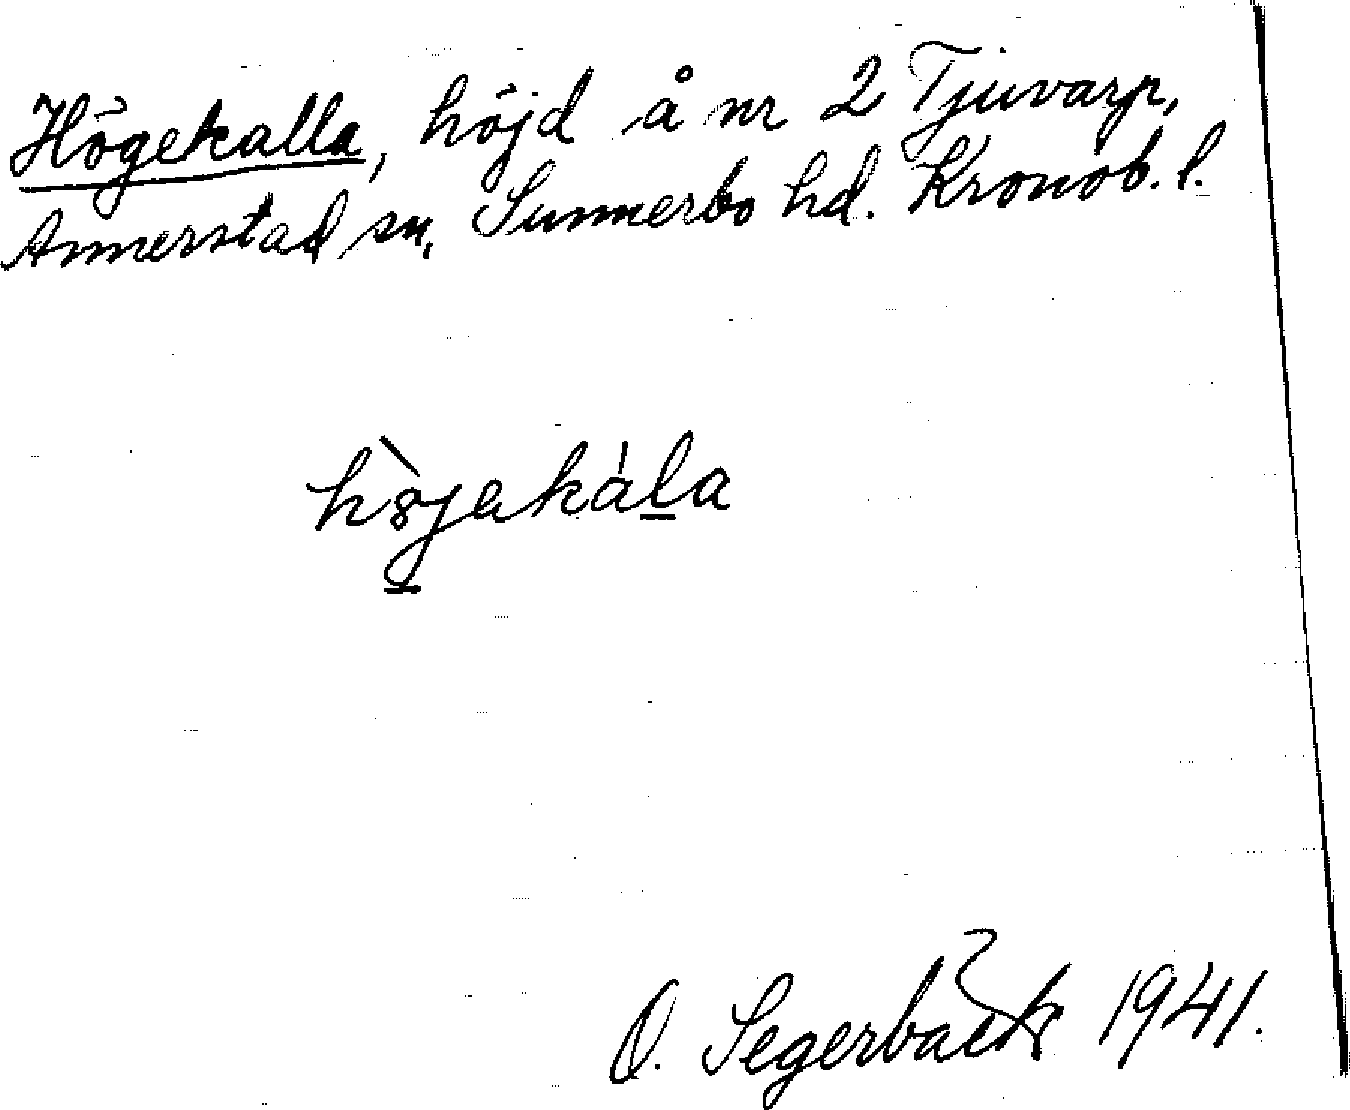 Högekalla, höjd å nr 2 Tjuvarp,
Annerstad sn, Sunnerbo hd. Kronob. l.
höjekala
O. Segerbäck 1941.